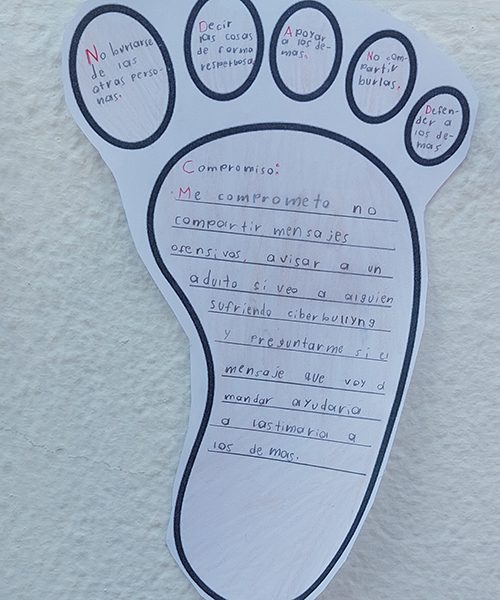 No burlarse
de las
otras perso-
nas.
Decir
las cosas
de forma
respetuosa
Apoyar
a los de-
mas.
No com-
partir
burlas.
Defen-
der a
los de-
mas
Compromiso:
Me comprometo no
compartir mensajes
ofensivos, avisar a un
adulto si veo a alguien
sufriendo ciberbullyng
y preguntarme si el
mensaje que voy a
mandar ayudaria
o lastimaria a
los demas.